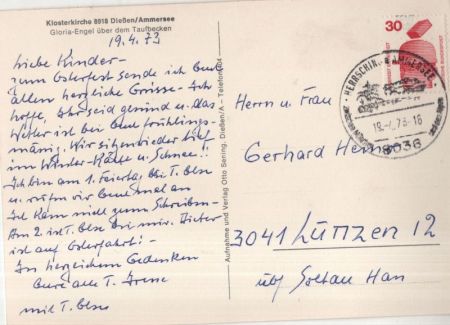 Klosterkirche 8918 Dießen/Ammersee
Gloria-Engel über dem Taufbecken
19.4.73
Liebe Kinder –
zum Osterfest sende ich Euch
allen herzliche Grüsse. Ich
hoffe, Ihr seid gesund u. das
Wetter ist bei Euch frühlings-
mässig. Wir sitzen wieder tief
im Winter-Kälte u. Schnee!!
Ich bin am 1. Feiertag bei T. Else
u. rufen wir Euch mal an
Ihr kann mich zum Schreiben –
Am 2. ist T. Else bei mir. Dieter
ist auf Osterfahrt! –
In herzlichem Gedenken
Eure alte T. Irene
mit T. Else
Aufnahme und Verlag Otto Sening, Dießen/A – Telefon
30
DEUTSCHE BUNDESPOST
HERRSCHING AMMERSEE
19.-4.73-16
8036
Herrn u. Frau
Gerhard
3041 Lünzen 12
üb/ Soltau Han